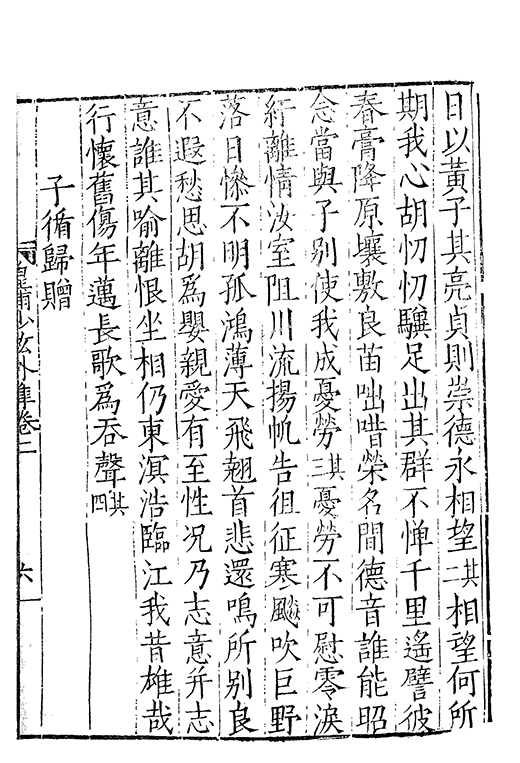 日以黃子其亮貞則崇德永相望其二相望何所
期我心胡忉忉驥足出其群不憚千里遙譬彼
春膏降原壤敷良苗咄喈榮名間德音誰能昭
念當與子別使我成憂勞其三憂勞不可慰零淚
紆離情汝室阻川流揚帆告徂征寒飇吹巨野
落日慘不明孤鴻薄天飛翹首悲還鳴所別良
不遐愁思胡為嬰親愛有至性況乃志意并志
意誰其喻離恨坐相仍東溟浩臨江我昔雄哉
行懷舊傷年邁長歌為吞聲其四
子循歸贈
皇甫少玄外集卷二
六